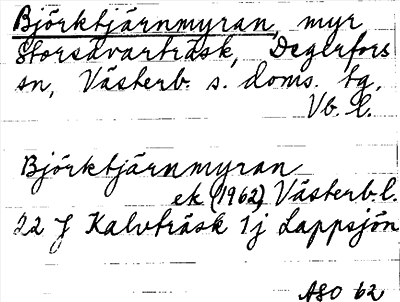 Björktjärnmyran, myr
Storsävarträsk, Degerfors
sn, Västerb. s. doms. tg.
Vb. l.
Björktjärnmyran
ek (1962) Västerb. l.
22 J Kalvträsk 1j Lappsjön
ASO 62